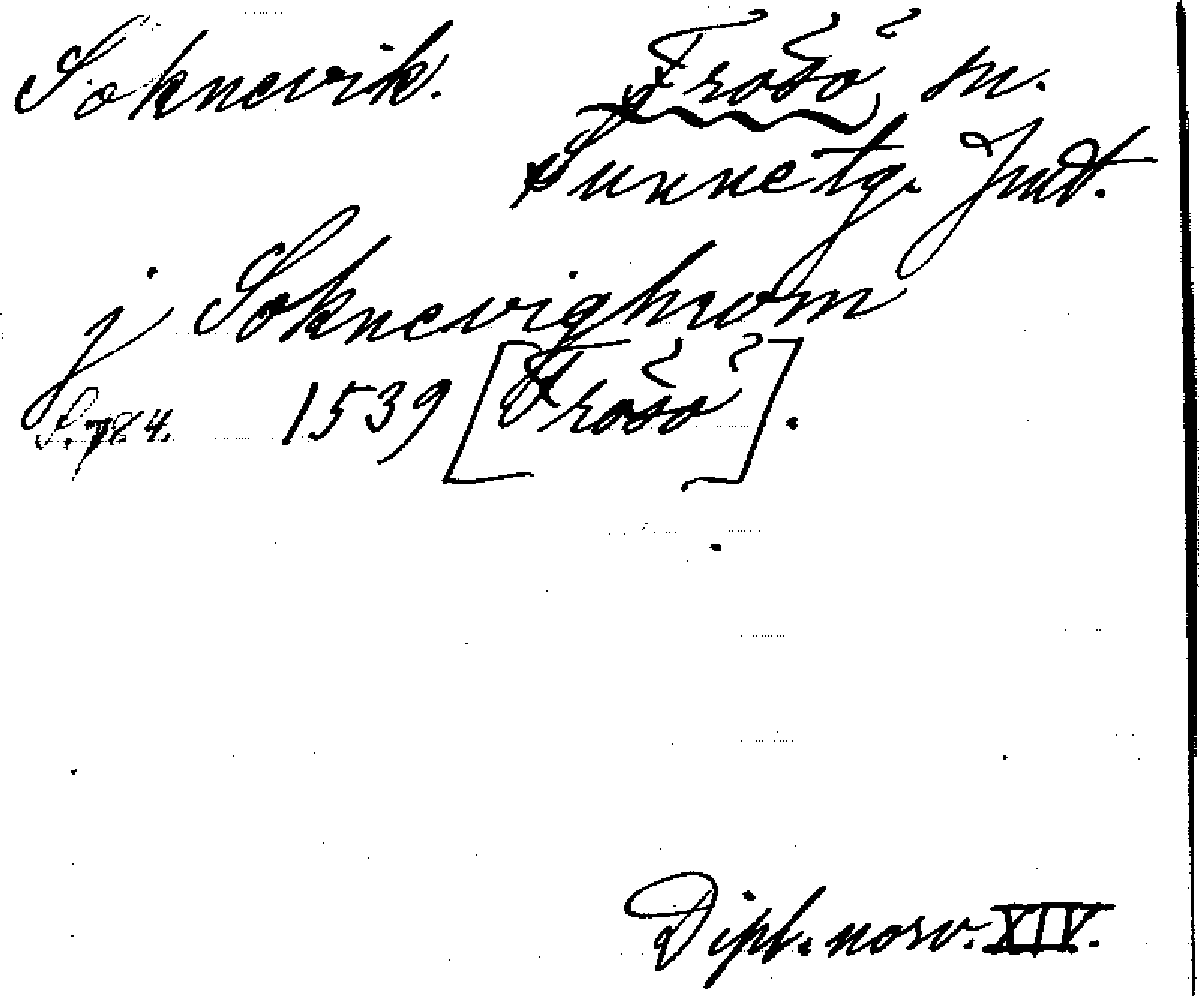 Soknevik. Frösö sn.
Sunnetg. Jmt.
j Soknevighwm
S. 784. 1539 [Frösö].
Dipl. norv. XIV.